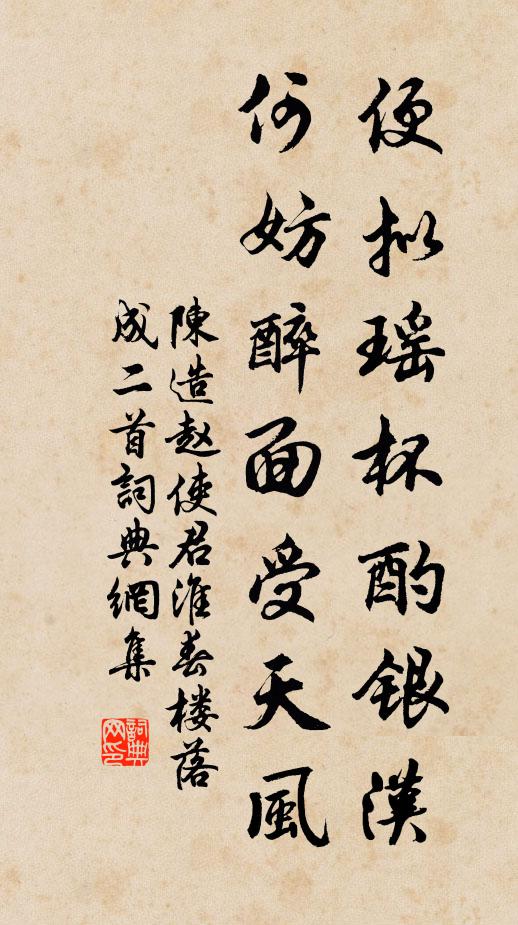 便拟瑶杯酌銀漢
何妨醉面受天風
陳造赵使君淮春楼落
成二首詞典網集
詞典
网印